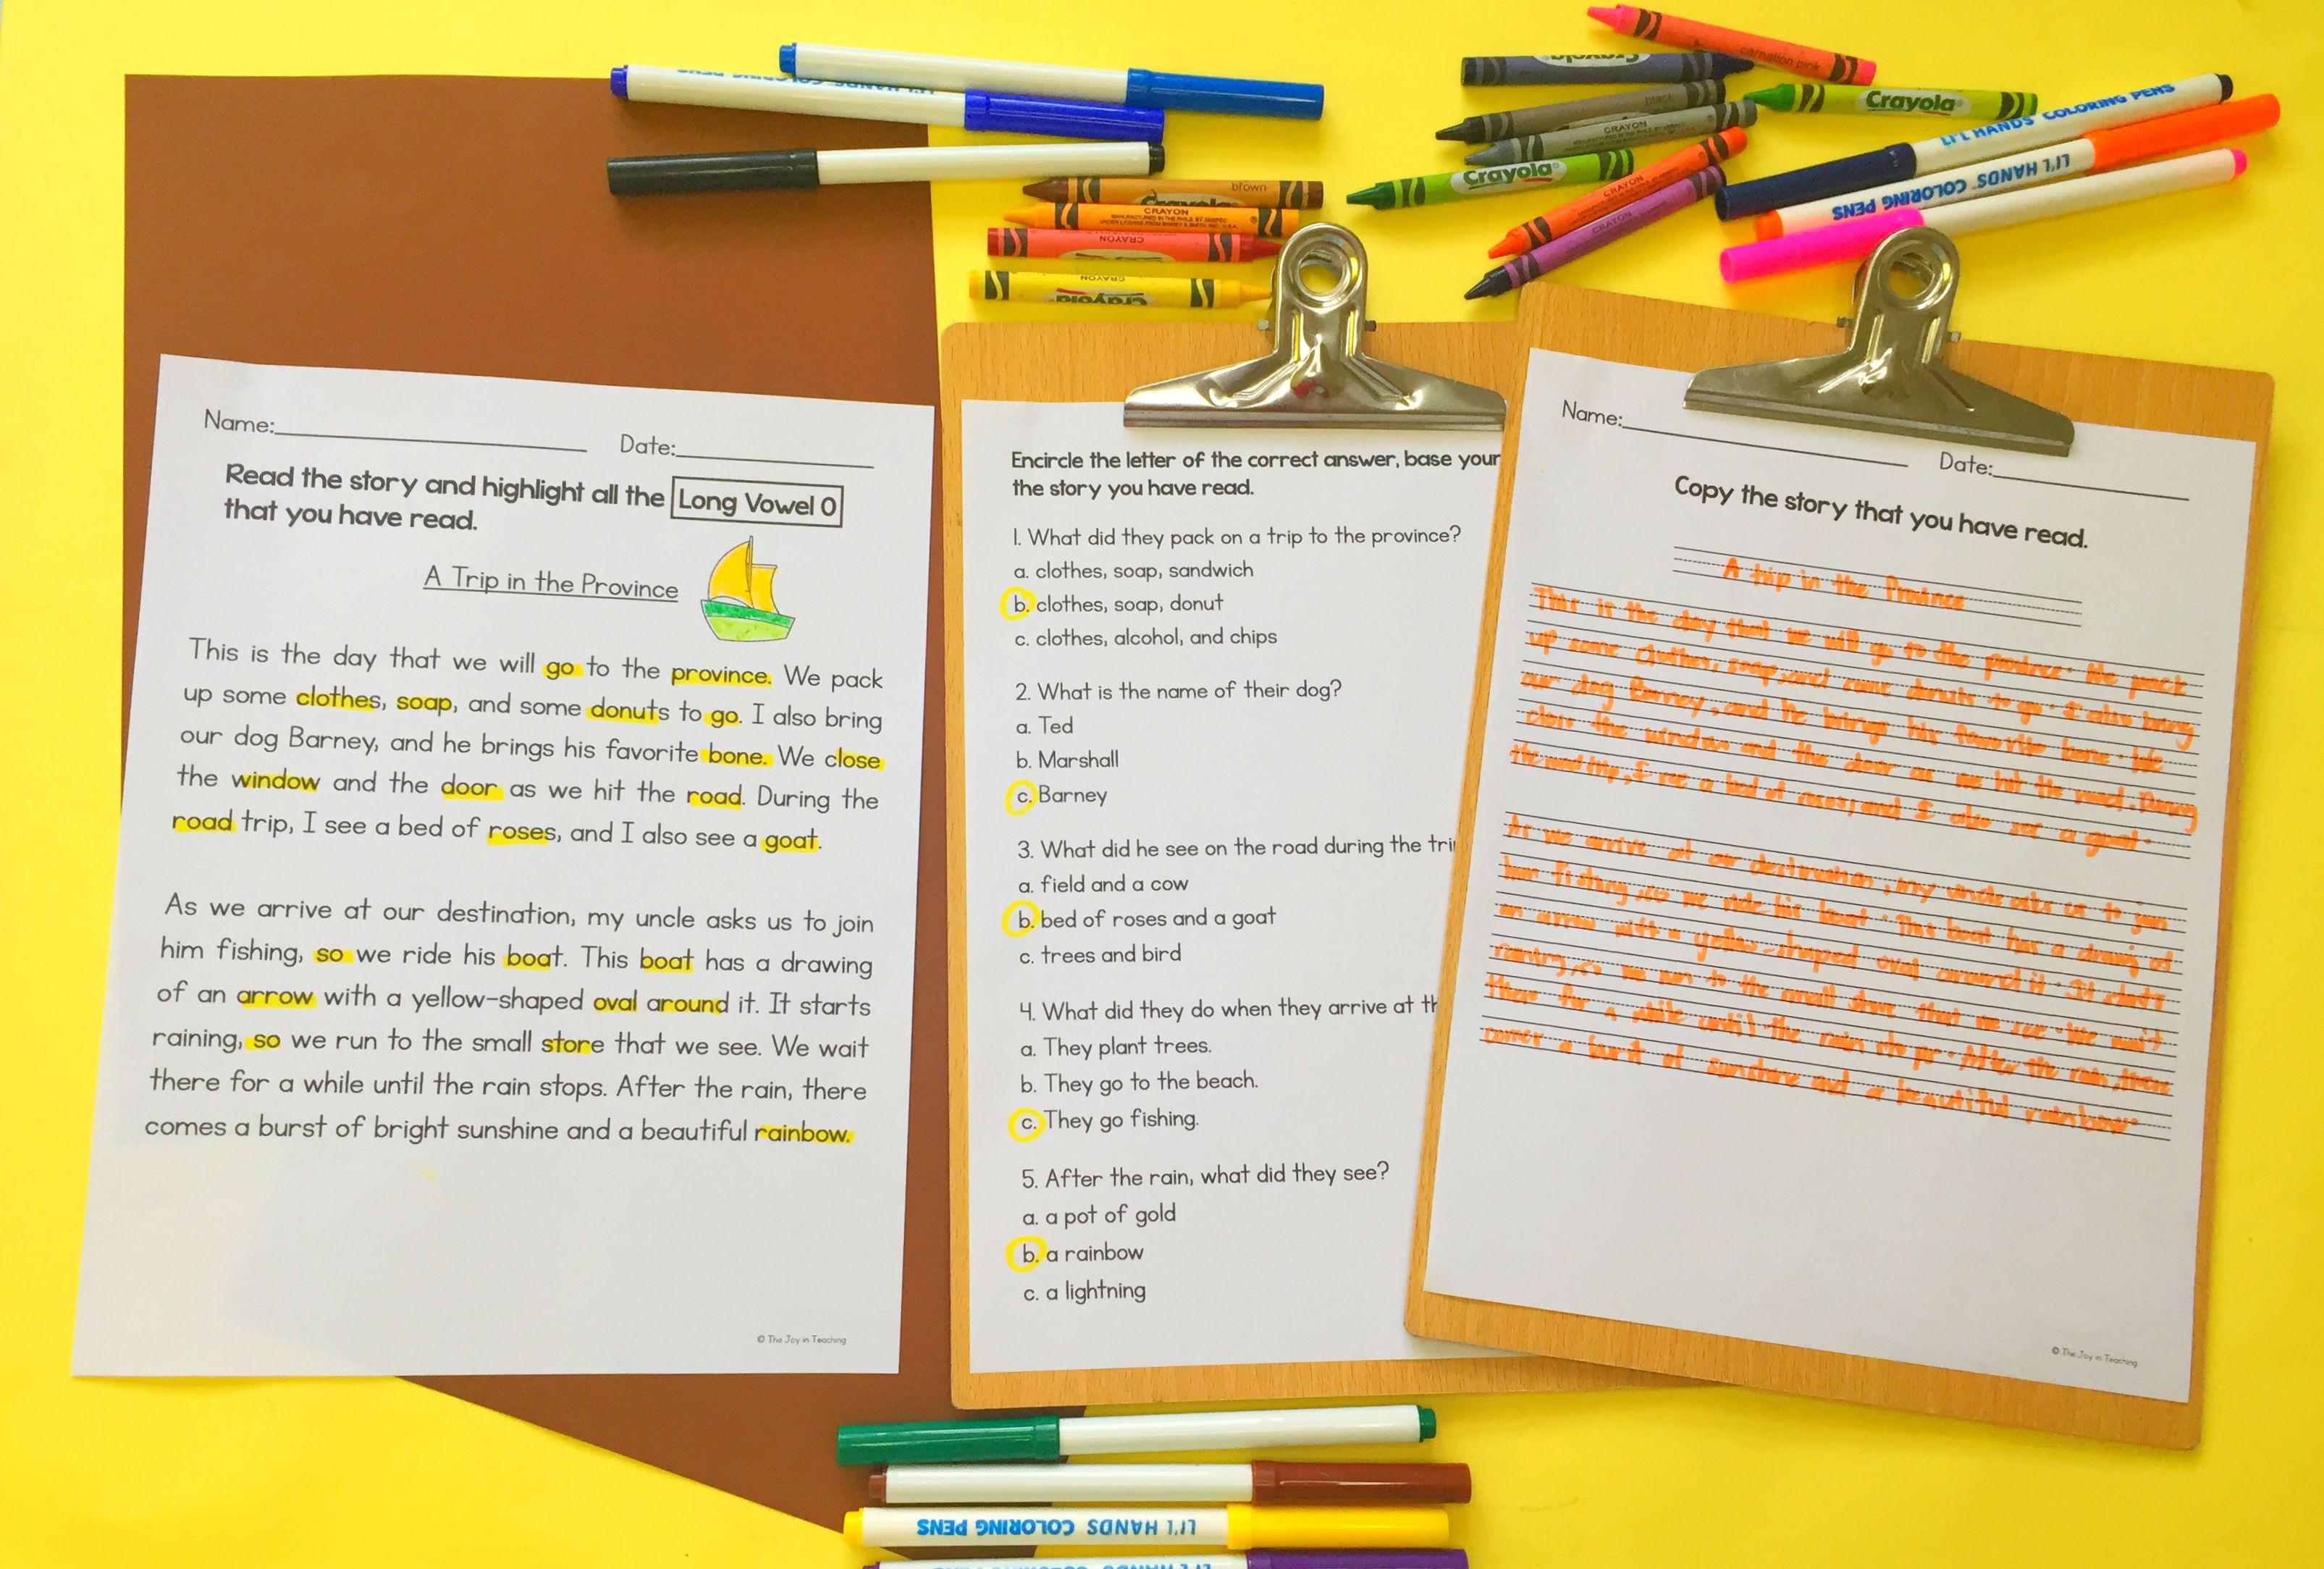 LI'L HANDS COLORING PENS
COLORING PENS
carnation pink
Crayola
black
CRAYON
Crayola
Crayola
CRAYON
CRAYON
LI'L HANDS COLORING PENS
LI'L HANDS COLORING PENS
brown
Crayola
CRAYON
CRAYON
CRAYON
Crayola
Name:
Date:
Read the story and highlight all the Long Vowel O
that you have read.
A Trip in the Province
This is the day that we will go to the province. We pack
up some clothes, soap, and some donuts to go. I also bring
our dog Barney, and he brings his favorite bone. We close
the window and the door as we hit the road. During the
road trip, I see a bed of roses, and I also see a goat.
As we arrive at our destination, my uncle asks us to join
him fishing, so we ride his boat. This boat has a drawing
of an arrow with a yellow-shaped oval around it. It starts
raining, so we run to the small store that we see. We wait
there for a while until the rain stops. After the rain, there
comes a burst of bright sunshine and a beautiful rainbow.
© The Joy in Teaching
Encircle the letter of the correct answer, base your
the story you have read.
1. What did they pack on a trip to the province?
a. clothes, soap, sandwich
b. clothes, soap, donut
c. clothes, alcohol, and chips
2. What is the name of their dog?
a. Ted
b. Marshall
c. Barney
3. What did he see on the road during the tri
a. field and a cow
b. bed of roses and a goat
c. trees and bird
4. What did they do when they arrive at th
a. They plant trees.
b. They go to the beach.
c. They go fishing.
5. After the rain, what did they see?
a. a pot of gold
b. a rainbow
c. a lightning
Name:
Date:
Copy the story that you have read.
A trip in the Province
This is the day that we will go to the province. We pack
up some clothes, soap, and some donuts to go. I also bring
our dog Barney, and he brings his favorite bone. We
close the window and the door as we hit the road. During
the road trip, I see a bed of roses, and I also see a goat.
As we arrive at our destination, my uncle asks us to join
him fishing, so we ride his boat. This boat has a drawing of
an arrow with a yellow-shaped oval around it. It starts
raining, so we run to the small store that we see. We wait
there for a while until the rain stops. After the rain, there
comes a burst of sunshine and a beautiful rainbow.
© The Joy in Teaching
LI'L HANDS COLORING PENS
LI'L HANDS COLORING PENS